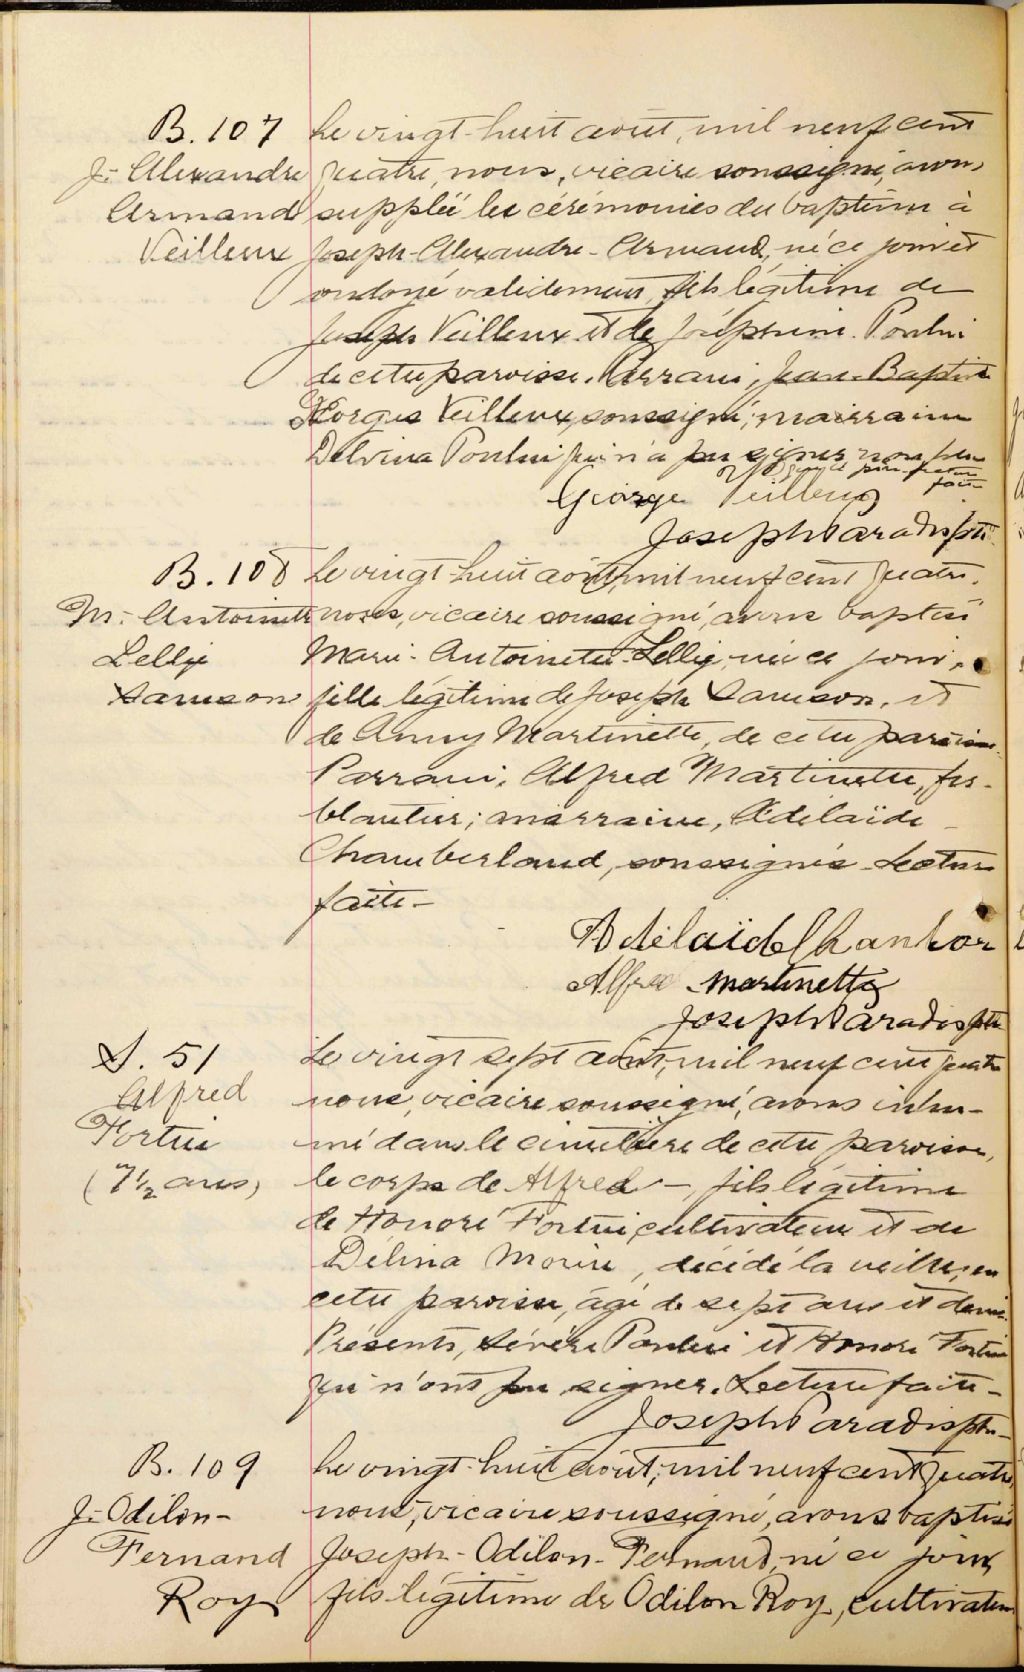 B. 107
J.- Alexandre
Armand
Veilleux
Le vingt-huit août, mil neuf cent
quatre, nous, vicaire soussigné, avons
suppléé les cérémonies du baptême à
Joseph-Alexandre-Armand, né ce jour et
ondoyé validement, fils légitime de
Joseph Veilleux et de Joséphine Poulin
de cette paroisse. Parrain, Jean-Baptiste
Georges Veilleux, soussigné; marraine
Delvina Poulin qui n'a pu signer non plus
faite
George Veilleux
Joseph Paradis ptre
B. 108
M.- Antoinette
Lellie
Samson
Le vingt-huit août, mil neuf cent quatre,
nous, vicaire soussigné, avons baptisé
Marie-Antoinette-Lellie, née ce jour,
fille légitime de Joseph Samson, et
de Anny Martinette, de cette paroisse.
Parrain, Alfred Martinette, fer-
blantier; marraine, Adélaïde
Chamberland, soussignés. Lecture
faite-
Adélaïde Chanbor
Alfred Martinette
Joseph Paradis ptre
S. 51
Alfred
Fortin
(7 1/2 ans)
Le vingt sept août, mil neuf cent quatre
nous, vicaire soussigné, avons inhu-
mé dans le cimetière de cette paroisse,
le corps de Alfred -, fils légitime
de Honoré Fortin, cultivateur et de
Délina Morin, décédé la veille, en
cette paroisse, âgé de sept ans et demi.
Présents, Sévère Poulin et Honoré Fortin
qui n'ont pu signer. Lecture faite-
Joseph Paradis ptre-
B. 109
J.- Odilon-
Fernand
Roy
Le vingt-huit août, mil neuf cent quatre,
nous, vicaire soussigné, avons baptisé
Joseph-Odilon-Fernand, né ce jour,
fils légitime de Odilon Roy, cultivateur